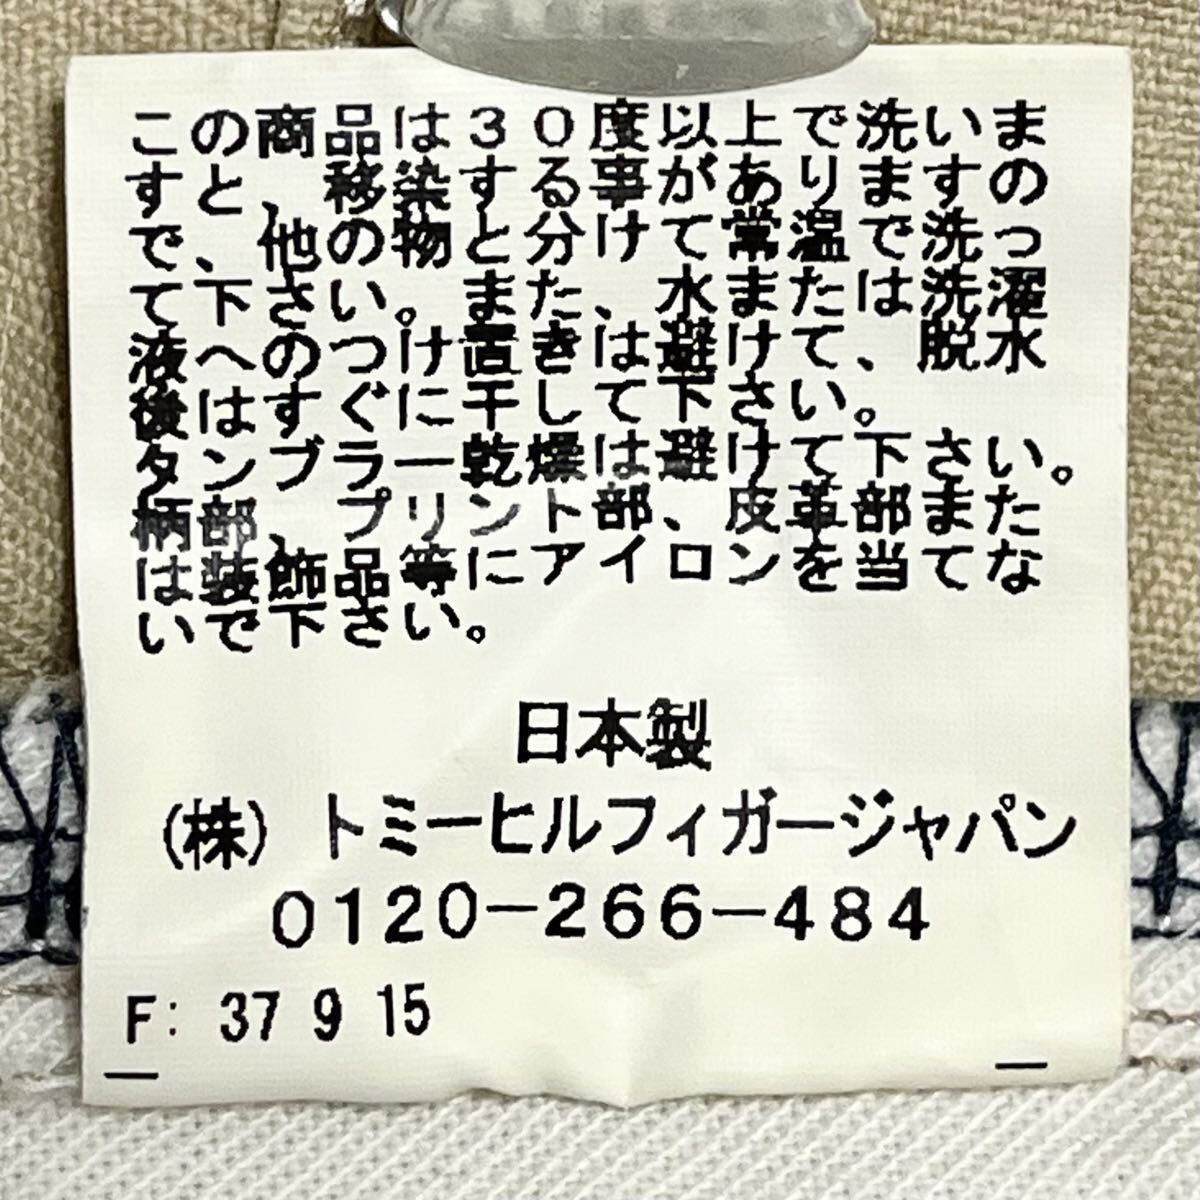 この商品は３０度以上で洗いま
すと、移染する事がありますの
で、他の物と分けて常温で洗っ
て下さい。また、水または洗濯
液へのつけ置きは避けて、脱水
後はすぐに干して下さい。
タンブラー乾燥は避けて下さい。
柄部、プリント部、皮革部また
は装飾品等にアイロンを当てな
いで下さい。
日本製
(株) トミーヒルフィガージャパン
0120-266-484
F: 37 9 15